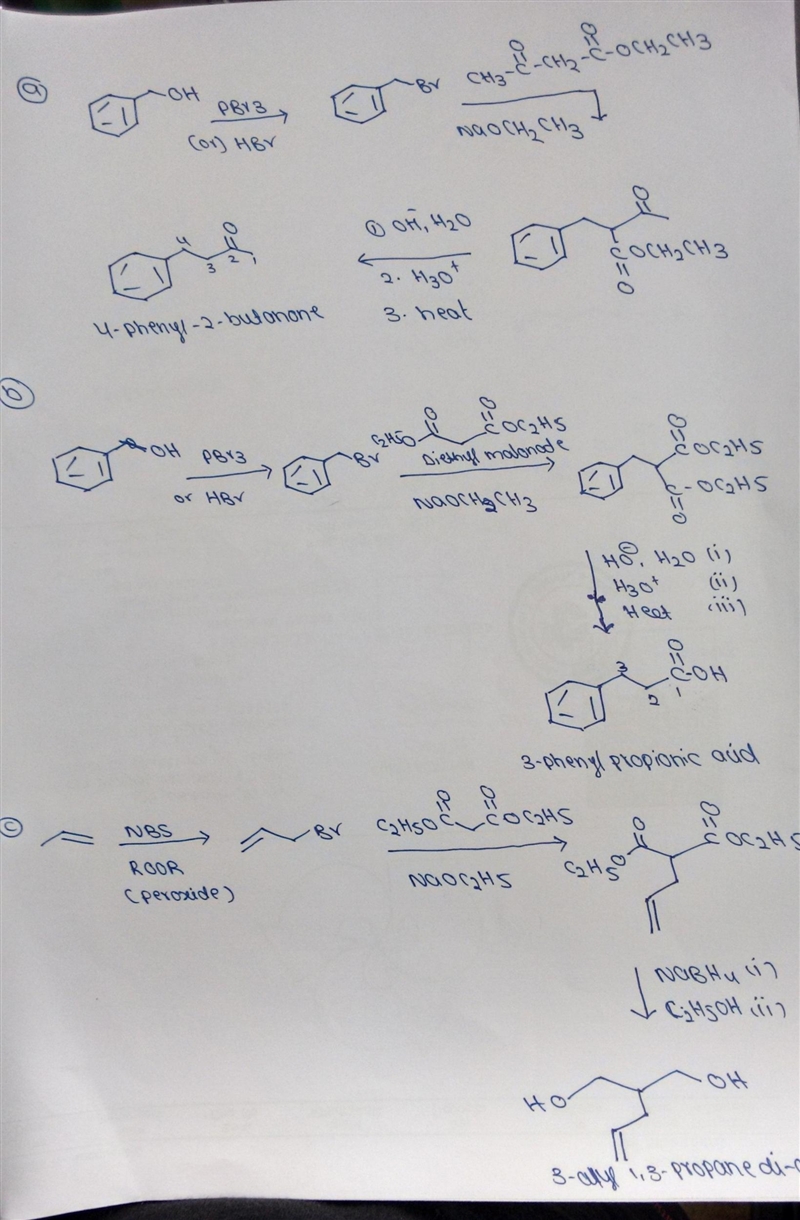 (a)
OH
PBr3
(or) HBr
Br
CH3-C-CH2-C-OCH2CH3
O O
NaOCH2CH3
O
C OCH2CH3
O
① OH⁻, H2O
2. H3O+
3. heat
O
4 3 2 1
4-phenyl-2-butonone
(b)
OH
PBr3
or HBr
Br
C2H5O
O O
C OC2H5
NaOCH2CH3
O
C OC2H5
C-OC2H5
O
HO⊖, H2O (i)
H3O+ (ii)
Heat (iii)
O
3 C-OH
2 1
3-phenyl propionic acid
(c)
NBS
ROOR
(peroxide)
Br
O O
C2H5OC C OC2H5
NaOC2H5
O O
C OC2H5
C2H5O
NaBH4 (i)
C2H5OH (ii)
HO OH
1,3-propane di-